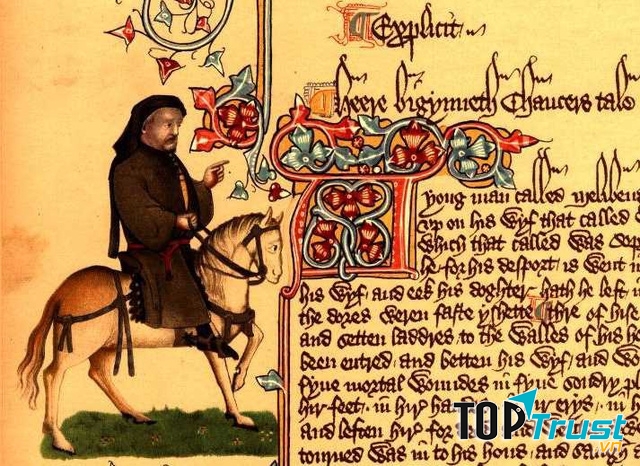 Explicit
Heere bigynneth Chaucers tale
yong man called melibeus
up on his wyf that called
which that called was Sop
he for his desport is went in
his wyf and eek his doghter hath he left in
the dores weren faste yshette thre of hise
and setten laddres to the walles of his h
been entred and betten his wyf and wo
fyve mortal woundes in fyve sondry p
hir feet in hir ha ir erys in h
and leften hir for
torned was in to his hous and saugh
TOP Trust
.VN